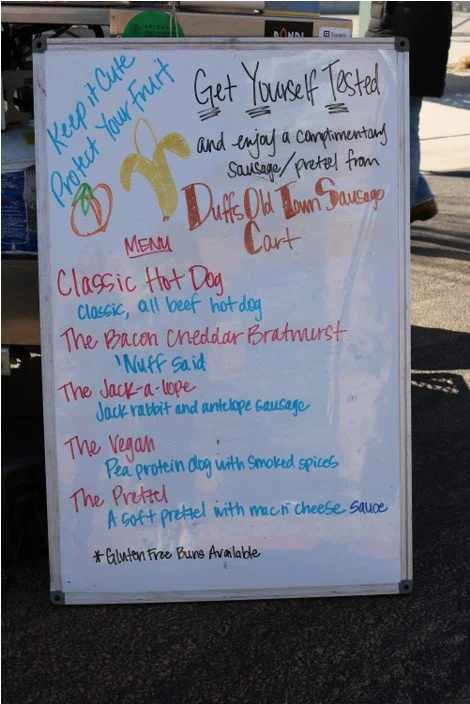 Keep it Cute
Protect Your Fruit
Get Yourself Tested
and enjoy a complimentary
sausage/pretzel from
Duffs Old Town Sausage
Cart
MENU
Classic Hot Dog
classic, all beef hotdog
The Bacon Cheddar Bratwurst
'Nuff said
The Jack-a-lope
Jack rabbit and antelope sausage
The Vegan
Pea protein dog with smoked spices
The Pretzel
A soft pretzel with mac n' cheese sauce
*Gluten Free Buns Available
Square